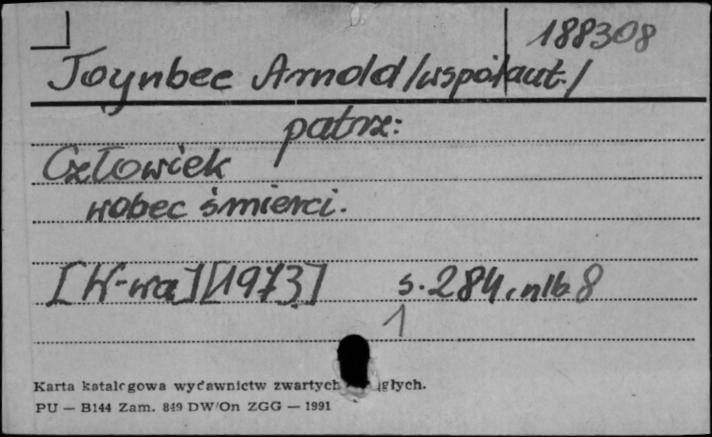 188308
Toynbee Arnold /współaut./
patrz:
Człowiek
wobec śmierci.
[W-wa] [1973] s. 284, nlb 8
1
Karta katalogowa wydawnictw zwartych głych.
PU — B144 Zam. 849 DW/On ZGG — 1991